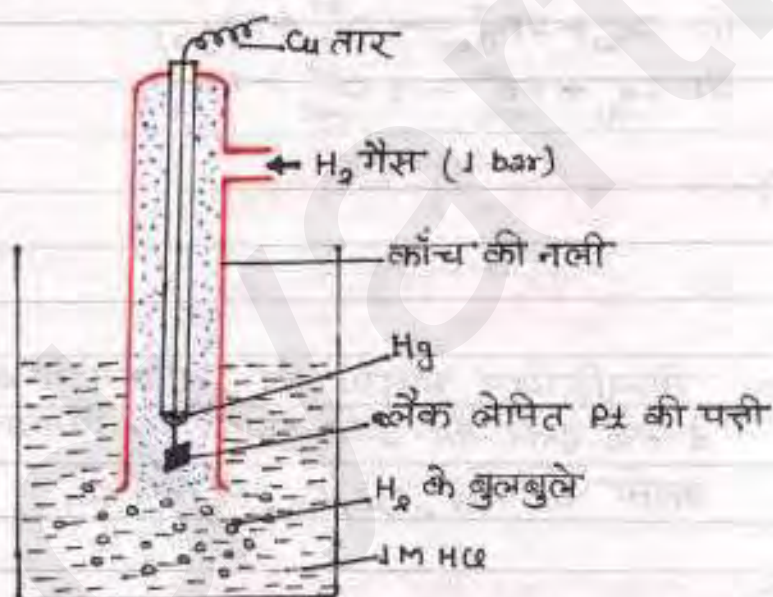 Cu तार
H₂ गैस (1 bar)
काँच की नली
Hg
ब्लैक लेपित Pt की पत्ती
H₂ के बुलबुले
1M HCl